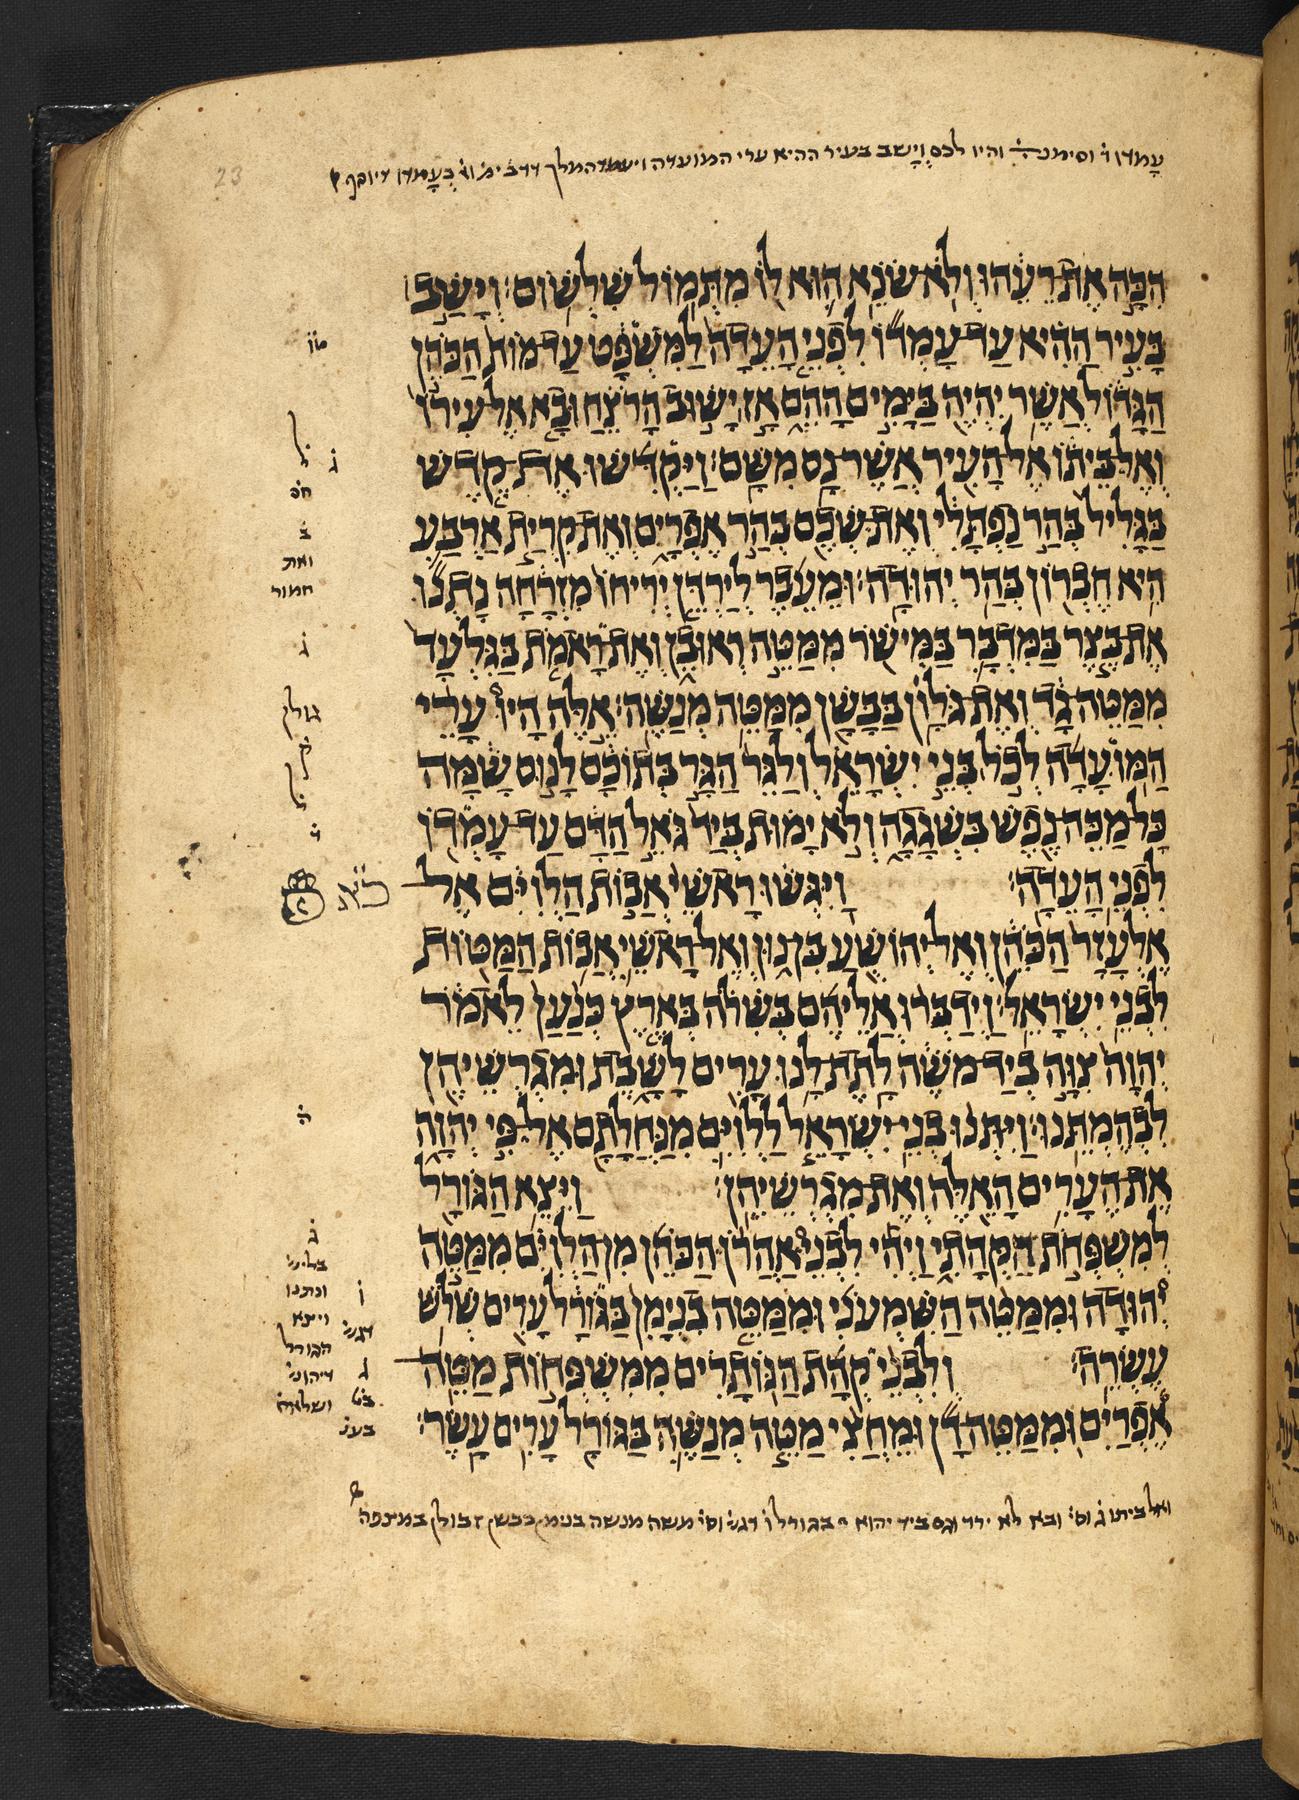 עמדו ו֗ וסימנה֗ והיו לכם וישב בעיר ההיא ערי המועדה ויעמד המלך דדב֗ ימ֗
23
הִכָּה אֶת רֵעֵהוּ וְלֹא שֹׂנֵא הוּא לוֹ מִתְּמוֹל שִׁלְשׁוֹם׃ וְיָשַׁב
בָּעִיר הַהִיא עַד עָמְדוֹ לִפְנֵי הָעֵדָה לַמִּשְׁפָּט עַד מוֹת הַכֹּהֵן
הַגָּדוֹל אֲשֶׁר יִהְיֶה בַּיָּמִים הָהֵם אָז יָשׁוּב הָרֹצֵחַ וּבָא אֶל עִירוֹ
וְאֶל בֵּיתוֹ אֶל הָעִיר אֲשֶׁר נָס מִשָּׁם׃ וַיַּקְדִּשׁוּ אֶת קֶדֶשׁ
בַּגָּלִיל בְּהַר נַפְתָּלִי וְאֶת שְׁכֶם בְּהַר אֶפְרָיִם וְאֶת קִרְיַת אַרְבַּע
הִיא חֶבְרוֹן בְּהַר יְהוּדָה׃ וּמֵעֵבֶר לְיַרְדֵּן יְרִיחוֹ מִזְרָחָה נָתְנוּ
אֶת בֶּצֶר בַּמִּדְבָּר בַּמִּישֹׁר מִמַּטֵּה רְאוּבֵן וְאֶת רָאמֹת בַּגִּלְעָד
מִמַּטֵּה גָד וְאֶת גֹּלָוֹן בַּבָּשָׁן מִמַּטֵּה מְנַשֶּׁה׃ אֵלֶּה הָיוּ עָרֵי
הַמּוּעָדָה לְכֹל בְּנֵי יִשְׂרָאֵל וְלַגֵּר הַגָּר בְּתוֹכָם לָנוּס שָׁמָּה
כָּל מַכֵּה נֶפֶשׁ בִּשְׁגָגָה וְלֹא יָמוּת בְּיַד גֹּאֵל הַדָּם עַד עָמְדוֹ
לִפְנֵי הָעֵדָה׃ וַיִּגְּשׁוּ רָאשֵׁי אֲבוֹת הַלְוִיִּם אֶל
אֶלְעָזָר הַכֹּהֵן וְאֶל יְהוֹשֻׁעַ בִּן נוּן וְאֶל רָאשֵׁי אֲבוֹת הַמַּטּוֹת
לִבְנֵי יִשְׂרָאֵל׃ וַיְדַבְּרוּ אֲלֵיהֶם בְּשִׁלֹה בְּאֶרֶץ כְּנַעַן לֵאמֹר
יְהוָה צִוָּה בְיַד מֹשֶׁה לָתֶת לָנוּ עָרִים לָשָׁבֶת וּמִגְרְשֵׁיהֶן
לִבְהֶמְתֵּנוּ׃ וַיִּתְּנוּ בְנֵי יִשְׂרָאֵל לַלְוִיִּם מִנַּחֲלָתָם אֶל פִּי יְהוָה
אֶת הֶעָרִים הָאֵלֶּה וְאֶת מִגְרְשֵׁיהֶן׃ וַיֵּצֵא הַגּוֹרָל
לְמִשְׁפְּחֹת הַקְּהָתִי וַיְהִי לִבְנֵי אַהֲרֹן הַכֹּהֵן מִן הַלְוִיִּם מִמַּטֵּה
יְהוּדָה וּמִמַּטֵּה הַשִּׁמְעֹנִי וּמִמַּטֵּה בִנְיָמִן בַּגּוֹרָל עָרִים שְׁלֹשׁ
עֶשְׂרֵה׃ וְלִבְנֵי קְהָת הַנּוֹתָרִים מִמִּשְׁפְּחוֹת מַטֵּה
אֶפְרַיִם וּמִמַּטֵּה דָן וּמֵחֲצִי מַטֵּה מְנַשֶּׁה בַּגּוֹרָל עָרִים עָשֶׂר׃
טו֗
ל
ג֗
חס
ב֗
ואת
חמור
ג֗
גולן
ק
ל
ו֗
כ״א
ה֗
ג֗
ונתנו
ויצא
הגורל
ואל ביתו ג֗ וס֗ ובא לא ירד וגם ביד יהוא בגורל ו֗ דגש֗ וס֗ משה מנשה בנימן בבשן זבולן במצפה